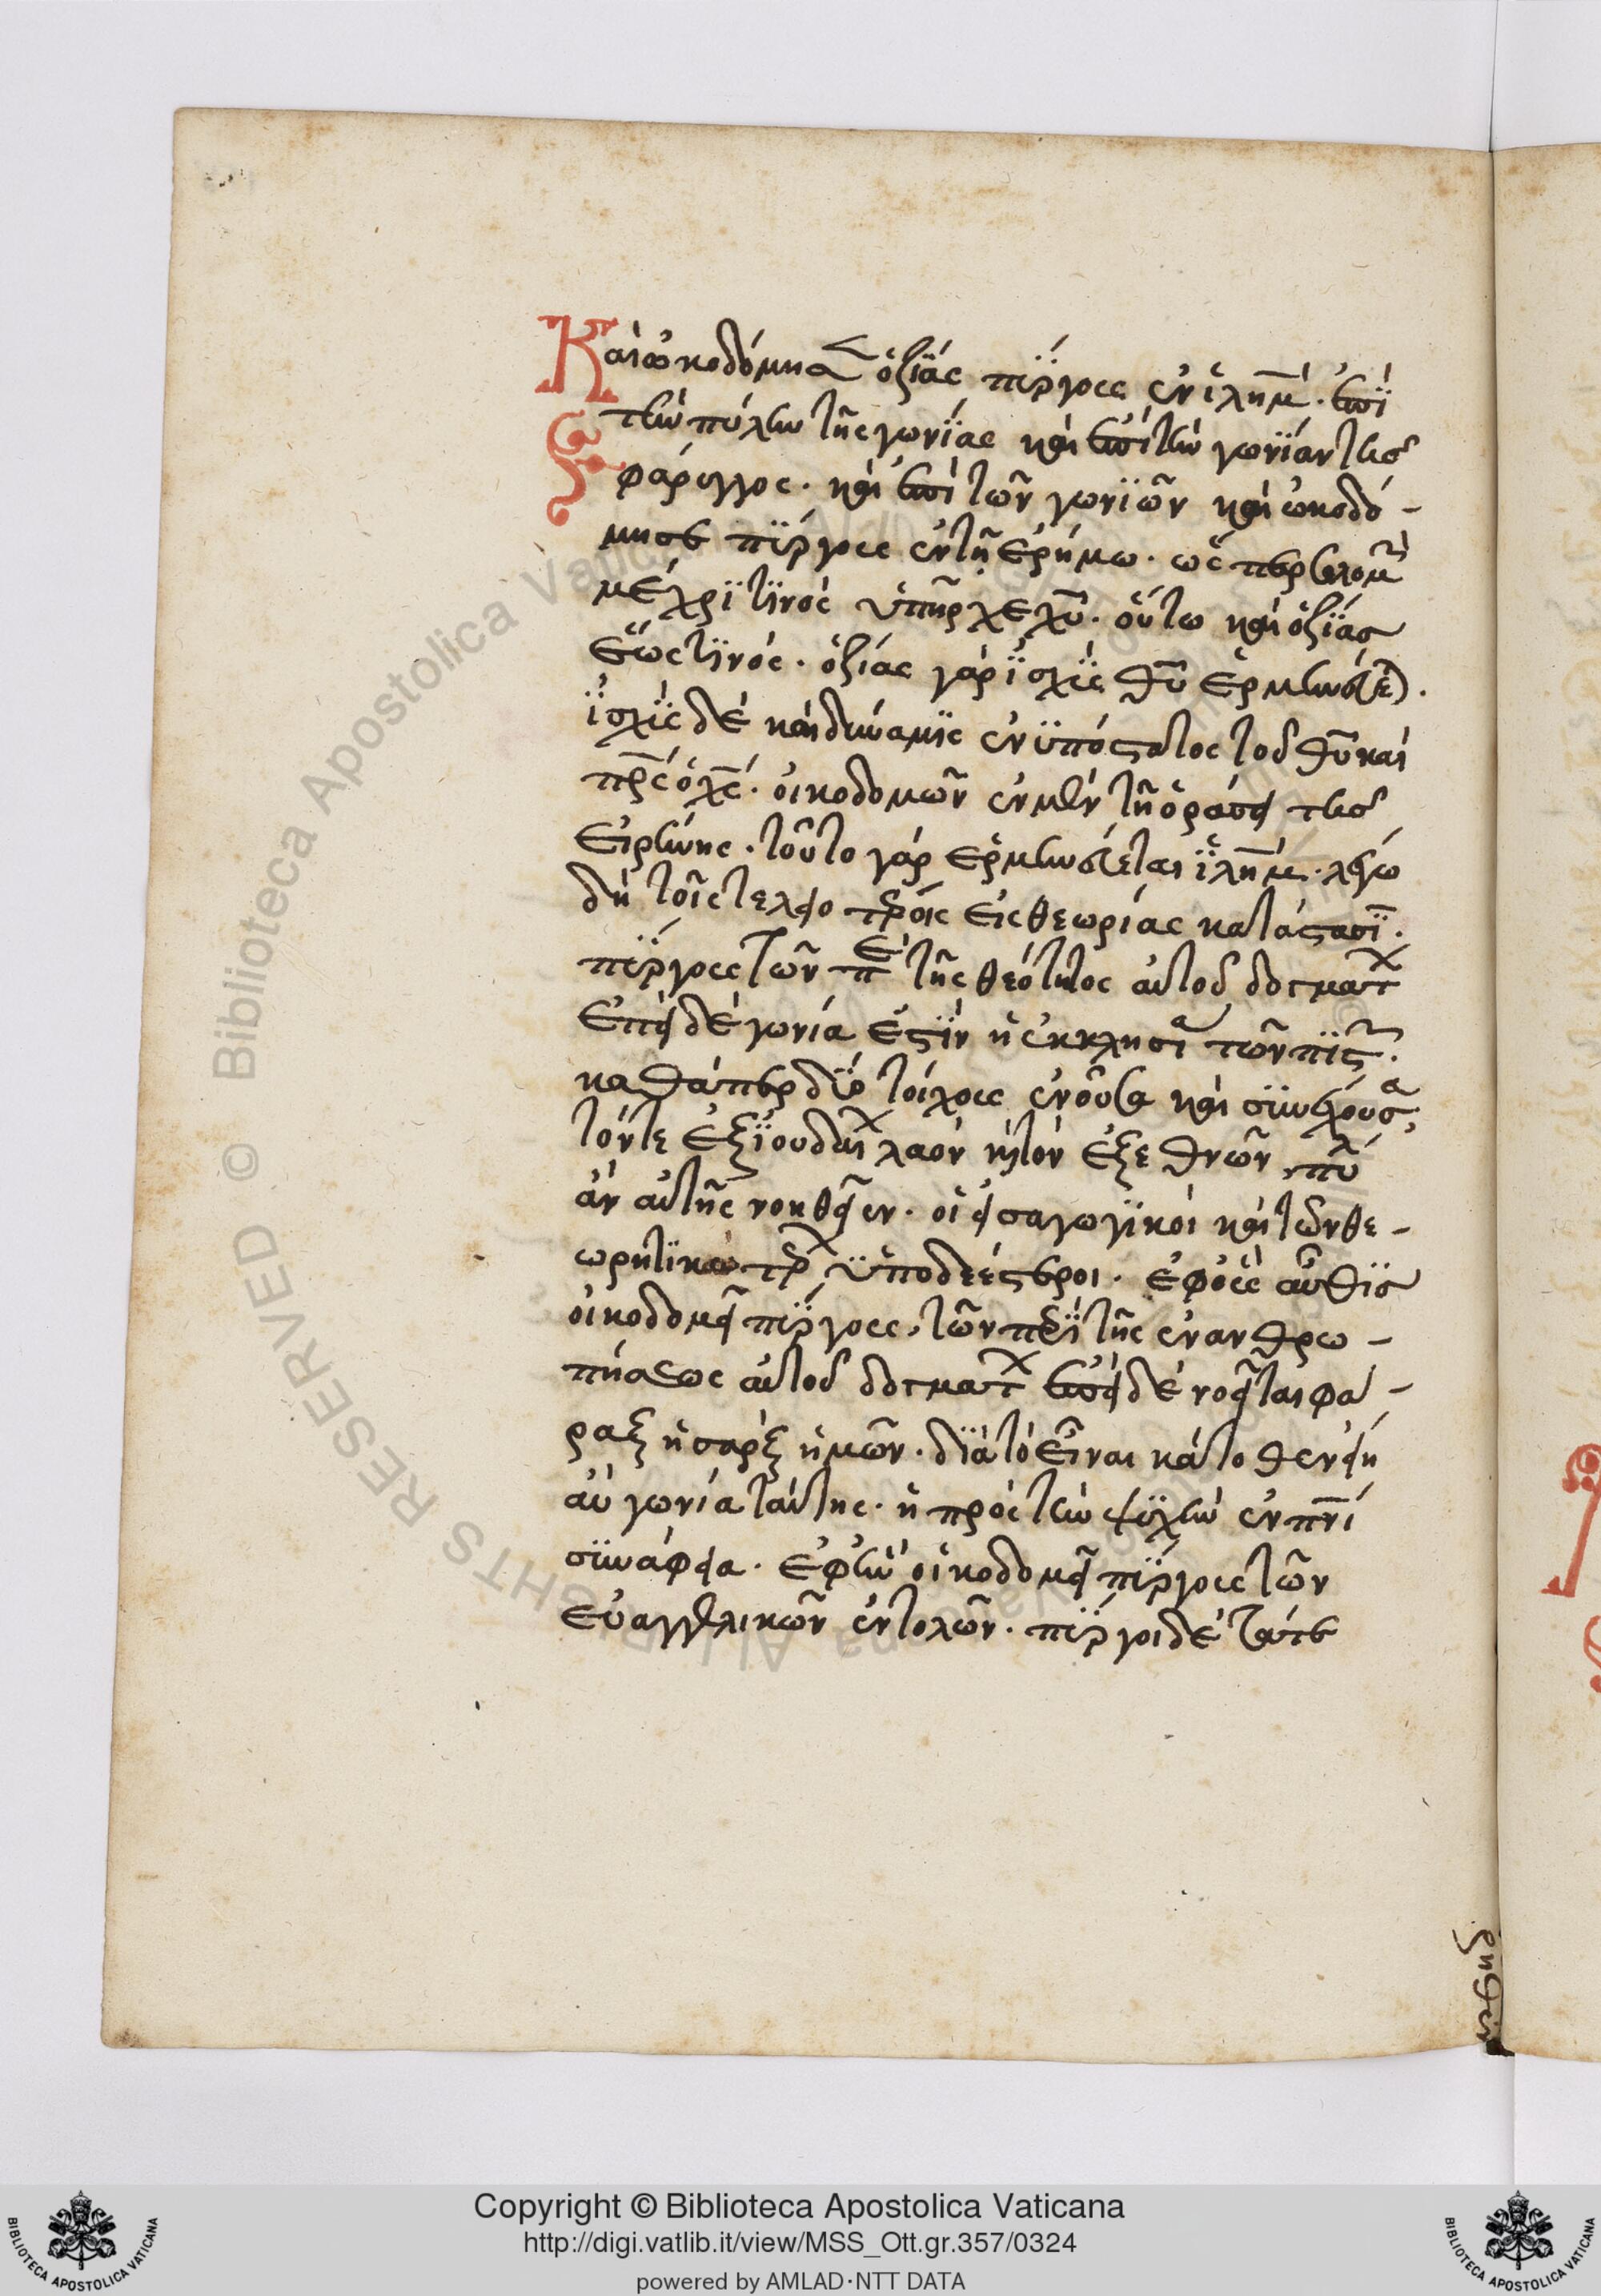 Καὶ ὠκοδόμησεν ὀζίας πύργους ἐν ἱλημ. ἐπὶ
τὴν πύλην τῆς γωνίας καὶ ἐπὶ τὴν γωνίαν τῆς
φάραγγος. καὶ ἐπὶ τῶν γωνιῶν καὶ ὠκοδό-
μησε πύργους ἐν τῇ ἐρήμω. ὥσπερ σολομῶν
μέχρι τινὸς ὑπῆρχε χῦ. οὕτω καὶ ὀζίας
ἕως τινός. ὀζίας γὰρ ἰσχὺς θῦ ἑρμηνεύεται.
ἰσχὺς δὲ καὶ δύναμις ἐνυπόστατος τοῦ θῦ καὶ
πρς ὁ χς. οἰκοδομῶν ἐν μὲν τῇ ὁράσει τῆς
εἰρήνης. τοῦτο γὰρ ἑρμηνεύεται ἱλημ. λέγω
δὴ τοῖς εἰς θεωρίας κατάστασιν.
πύργους τῶν περὶ τῆς θεότητος αὐτοῦ δογμάτων
ἐπεὶ δὲ γωνία ἐστὶν ἡ ἐκκλησία τῶν πιστῶν.
καθάπερ δύο τοίχους ἑνοῦσα καὶ συνέχουσα,
τόν τε ἐξ ἰουδαίων λαὸν καὶ τὸν ἐξ ἐθνῶν, πύλη
ἂν αὐτῆς νοηθεῖεν. οἱ εἰσαγωγικοὶ καὶ τῶν θε-
ωρητικωτέρων ὑποδεέστεροι. ἐφ οὓς αὖθις
οἰκοδομεῖ πύργους, τῶν περὶ τῆς ἐνανθρω-
πήσεως αὐτοῦ δογμάτων ἐπεὶ δὲ νοεῖται φά-
ραξ ἡ σὰρξ ἡμῶν. διὰ τὸ εἶναι κάτωθεν εἴη
ἂν γωνία ταύτης. ἡ πρὸς τὴν ψυχὴν ἐν πνι
συνάφεια. ἐφ ἣν οἰκοδομεῖ πύργους τῶν
εὐαγγελικῶν ἐντολῶν. πύργοι δὲ ταύτε
Copyright © Biblioteca Apostolica Vaticana
http://digi.vatlib.it/view/MSS_Ott.gr.357/0324
powered by AMLAD·NTT DATA
BIBLIOTECA APOSTOLICA VATICANA
BIBLIOTECA APOSTOLICA VATICANA
Biblioteca Apostolica Vaticana © ALL RIGHTS RESERVED